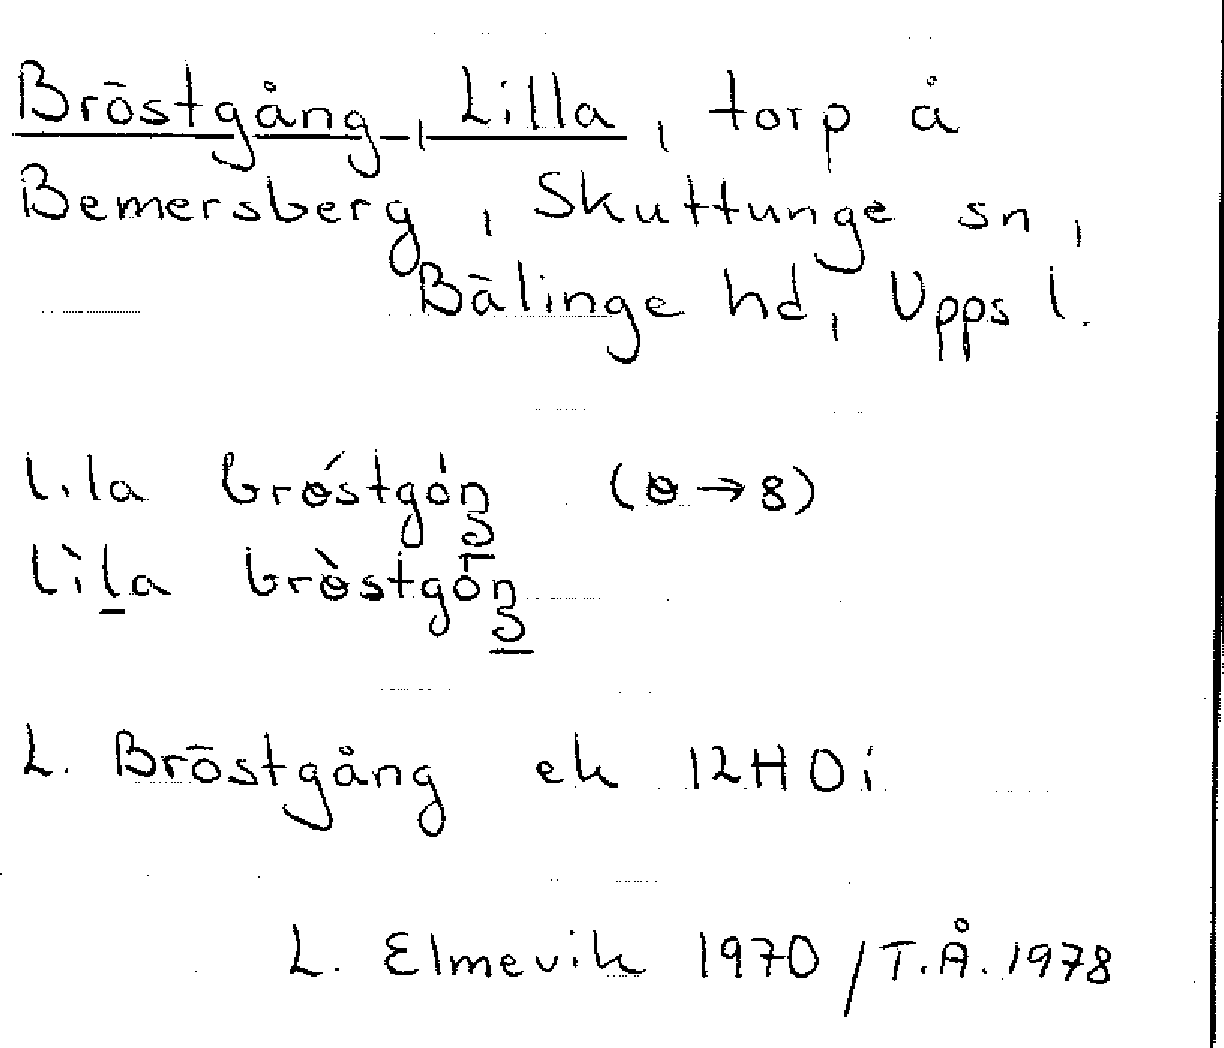 Bröstgång, Lilla, torp å
Bemersberg, Skuttunge sn,
Bälinge hd, Upps l.
lila brɵ́stgóŋ (ɵ→8)
lìla brɵ̀stgōŋ
L. Bröstgång ek 12H0i
L. Elmevik 1970 / T.Å. 1978